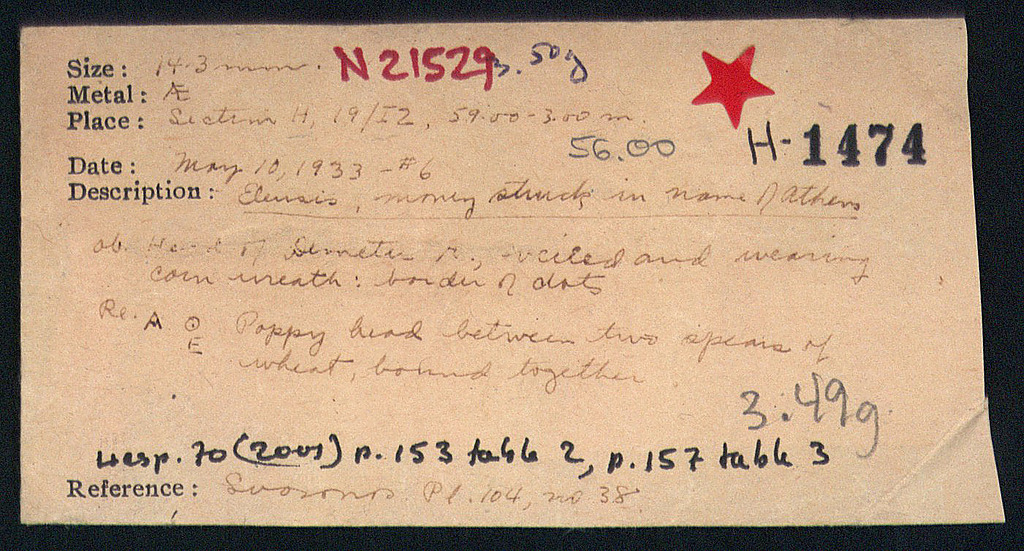 Size: 14.3 mm. N 21529 3.50g
Metal: Æ
Place: Section H, 19/IZ, 59.00-3.00 m.
56.00 H-1474
Date: May 10, 1933 - #6
Description: Eleusis, money struck in name of Athens
ob. Head of Demeter r., veiled and wearing
corn wreath: border of dots
Re. A Θ Poppy head between two spears of
E wheat, bound together
3.49g
Hesp. 70 (2001) p. 153 table 2, p. 157 table 3
Reference: Svoronos Pl. 104, no 38